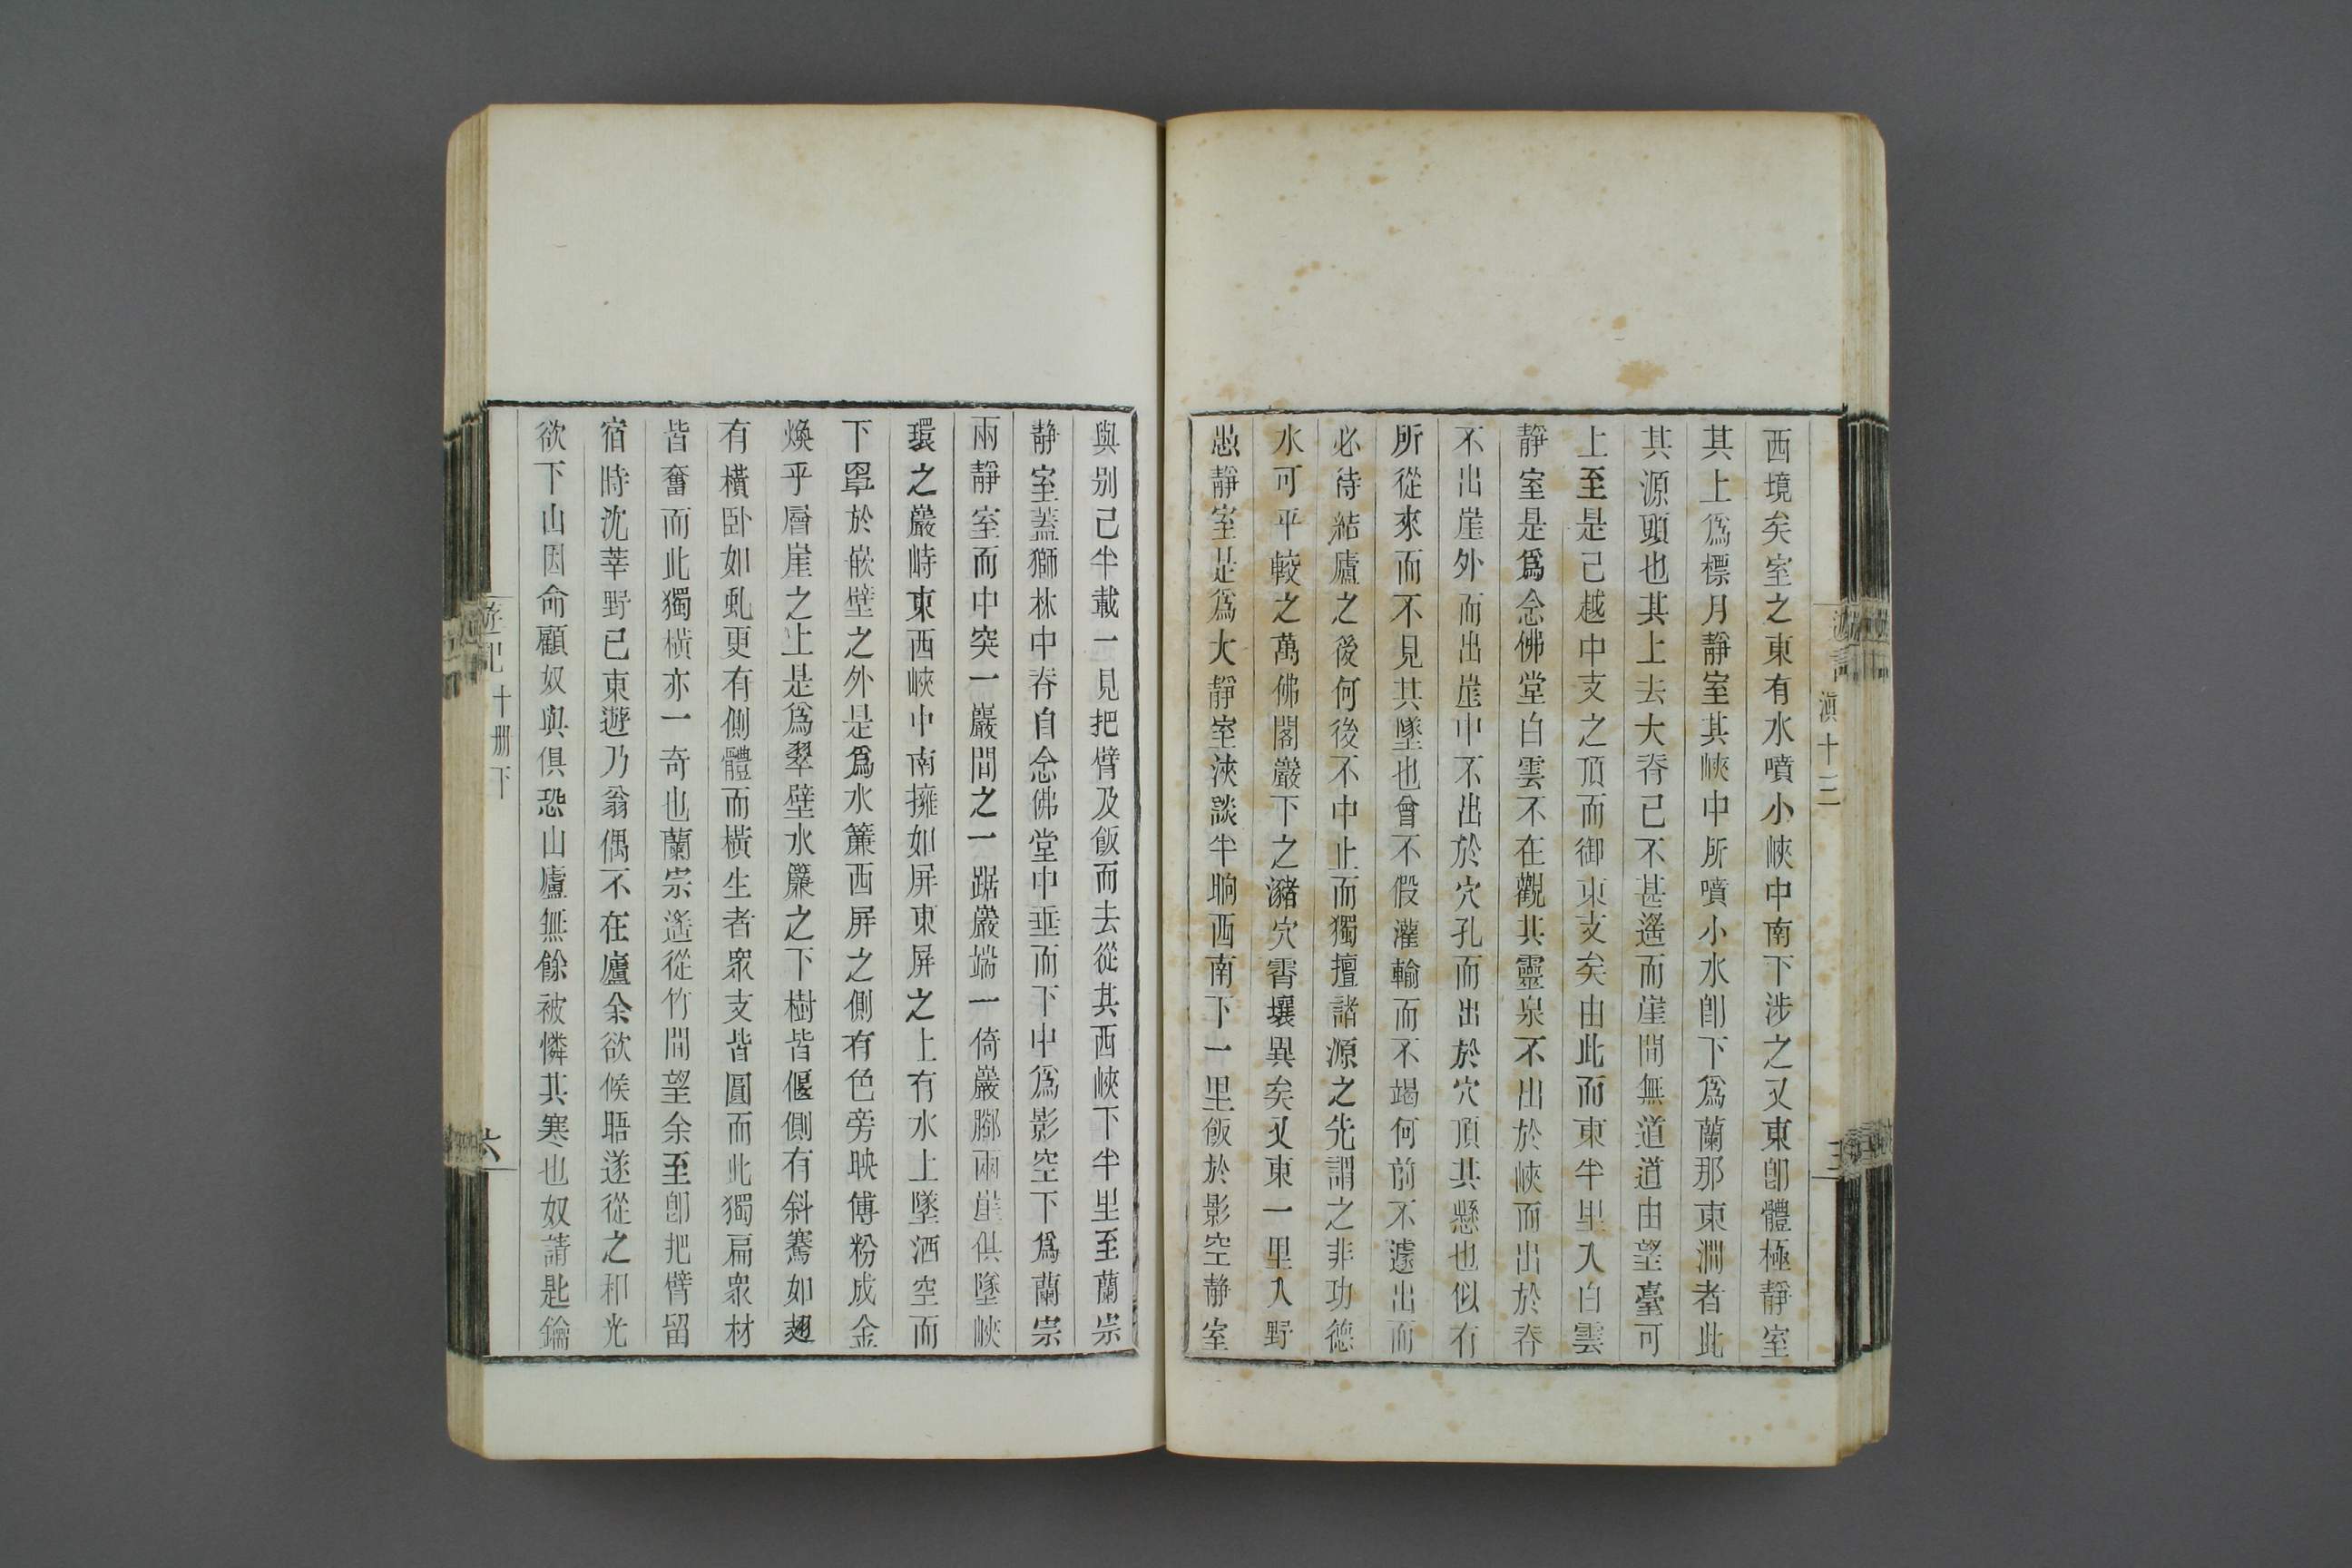 遊記
滇十三
西境矣室之東有水噴小峽中南下涉之又東卽體極靜室
其上爲標月靜室其峽中所噴小水卽下爲蘭那東澗者此
其源頭也其上去大脊已不甚遙而崖間無道道由望臺可
上至是已越中支之頂而御東支矣由此而東半里入白雲
靜室是爲念佛堂白雲不在觀其靈泉不出於峽而出於脊
不出崖外而出崖中不出於穴孔而出於穴頂其懸也似有
所從來而不見其墜也曾不假灌輸而不竭何前不遽出而
必待結廬之後何後不中止而獨擅諸源之先謂之非功德
水可乎較之萬佛閣巖下之瀦穴霄壤異矣又東一里入野
愚靜室是爲大靜室浹談半晌西南下一里飯於影空靜室
與别已半載一見把臂及飯而去從其西峽下半里至蘭宗
靜室蓋獅林中脊自念佛堂中垂而下中爲影空下爲蘭宗
兩靜室而中突一巖間之一踞巖端一倚巖脚兩崖俱墜峽
環之巖峙東西峽中南擁如屏東屏之上有水上墜洒空而
下罩於嵌壁之外是爲水簾西屏之側有色旁映傅粉成金
煥乎層崖之上是爲翠壁水簾之下樹皆偃側有斜騫如翅
有橫卧如虬更有側體而橫生者衆支皆圓而此獨扁衆材
皆奮而此獨橫亦一奇也蘭宗遙從竹間望余至卽把臂留
宿時沈莘野已東遊乃翁偶不在廬余欲候晤遂從之和光
欲下山因命顧奴與俱恐山廬無餘被憐其寒也奴請匙鑰
遊記
十册下
六